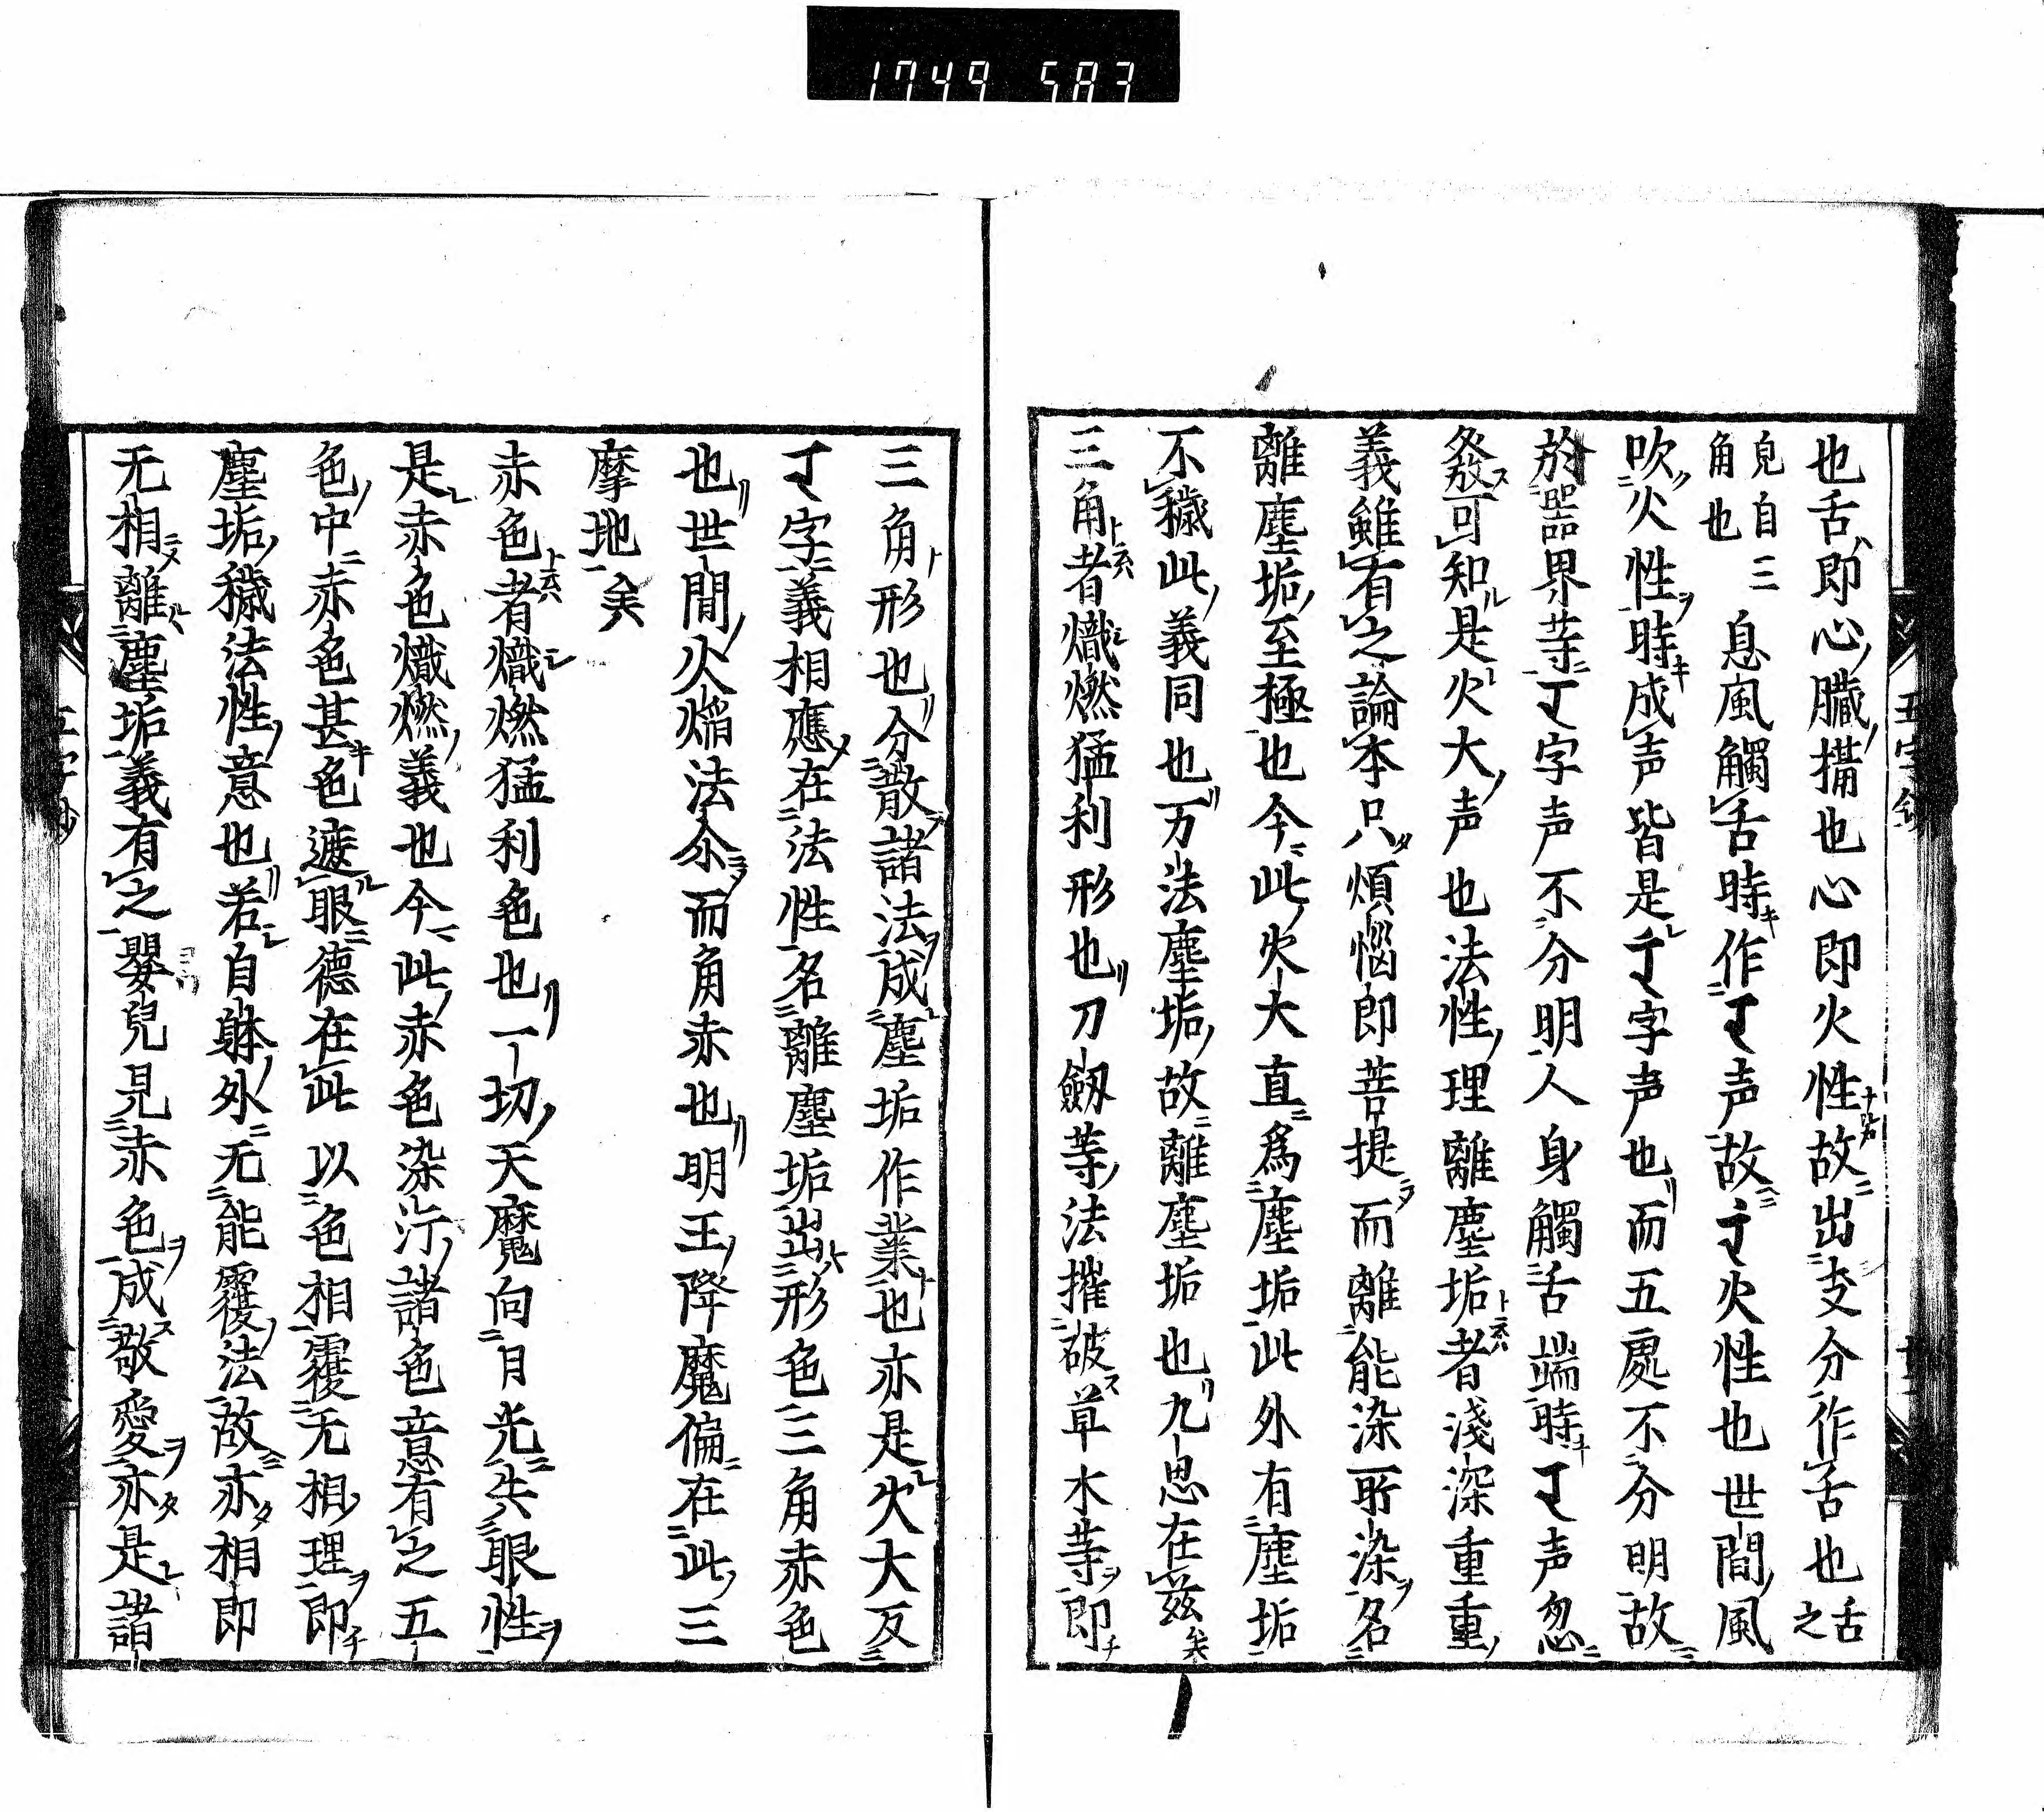 1749 583
也舌即心臓搆也心即火性故出支分作舌也舌之
皃自三角也息風觸舌時作𑖨声故𑖨火性也世間風
吹火性時成声皆是𑖨字声也而五處不分明故
於器界等𑖨字声不分明人身觸舌端時𑖨声忽
發可知是火大声也法性理離塵垢者淺深重重
義雖有之論本只煩惱即菩提而離能染所染名
離塵垢至極也今此火大直爲塵垢此外有塵垢
不穢此義同也万法塵垢故離塵垢也九思在茲矣
三角者熾燃猛利形也刀劔等法摧破草木等即
三角形也分散諸法成塵垢作業也亦是火大反
𑖨字義相應在法性名離塵垢出形色三角赤色
也世間火焔法尒而角赤也明王降魔偏在此三
摩地矣
赤色者熾燃猛利色也一切天魔向日光失眼性
是赤色熾燃義也今此赤色染汚諸色意有之五
色中赤色甚色遮眼德在此以色相覆无相理即
塵垢穢法性意也若自躰外无能覆法故亦相即
无相離塵垢義有之嬰兒見赤色成敬愛亦是諸